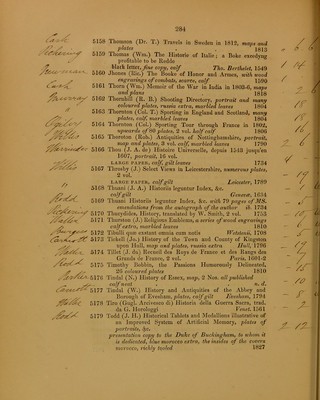 284
Cash 5158 Thomson (Dr. T.) Travels in Sweden in 1812, maps and
plates 1813
Pickering 5159 Thomas (Wm.) The Historie of Italie; a Boke excedyng
profitable to be Redde
black letter, fine copy, calf Tho. Berthelet, 1549
5160 Jhones (Ric.) The Booke of Honor and Armes, with wood
engravings of combats, scarce, calf 1590
Cash 5161 Thorn (Wm.) Memoir of the War in India in 1803-6, maps
and plans 1818
Murray 5162 Thornhill (R. B.) Shooting Directory, portrait and many
coloured plates, russia extra, marbled leaves 1804
5163 Thornton (Col. T.) Sporting in England and Scotland, many
plates, calf, marbled leaves 1804
5164 Thornton (Col.) Sporting Tour through France in 1802,
upwards of 80 plates, 2 vol. half calf 1806
5165 Thoroton (Rob.) Antiquities of Nottinghamshire, portrait,
map and plates, 3 vol. calf, marbled leaves 1790
5166 Thou (J. A. de) Histoire Universelle, depuis 1543 jusqu'en
1607, portrait, 16 vol.
LARGE PAPER, calf, gilt leaves 1734
Willis 5167 Throsby (J.) Select Views in Leicestershire, numerous plates,
2 vol.
LARGE PAPER, calf gilt Leicester, 1789
5168 Thuani (J. A.) Historia leguntur Index, &c.
calf gilt Genevæ, 1634
Rodd 5169 Thuani Historiis leguntur Index, &c. with 79 pages of MS.
emendations from the autograph of the author ib. 1734
Pickering 5170 Thucydides, History, translated by W. Smith, 2 vol. 1753
5171 Thurston (J.) Religious Emblems, a series of wood engravings
calf extra, marbled leaves 1810
5172 Tibulli quæ exstant omnia cum notis Wetstenii, 1708
5173 Tickell (Jn.) History of the Town and County of Kingston
upon Hull, map and plates, russia extra Hull, 1796
5174 Tillet (J. du) Recueil des Roys de France et des Rangs des
Grands de France, 2 vol. Paris, 1601-2
Rodd 5175 Timothy Bobbin, the Passions Humorously Delineated,
25 coloured plates 1810
5176 Tindal (N.) History of Essex, map, 2 Nos. all published
calf neat n. d.
5177 Tindal (W.) History and Antiquities of the Abbey and
Borough of Evesham, plates, calf gilt Evesham, 1794
5178 Tiro (Gugl. Arcivesco di) Historia della Guerra Sacra, trad.
da G. Horologgi Venet. 1561
Rodd 5179 Todd (J. H.) Historical Tablets and Medallions illustrative of
an Improved System of Artificial Memory, plates of
portraits, &c.
presentation copy to the Duke of Buckingham, to whom it
is dedicated, blue morocco extra, the insides of the covers
morocco, richly tooled 1827